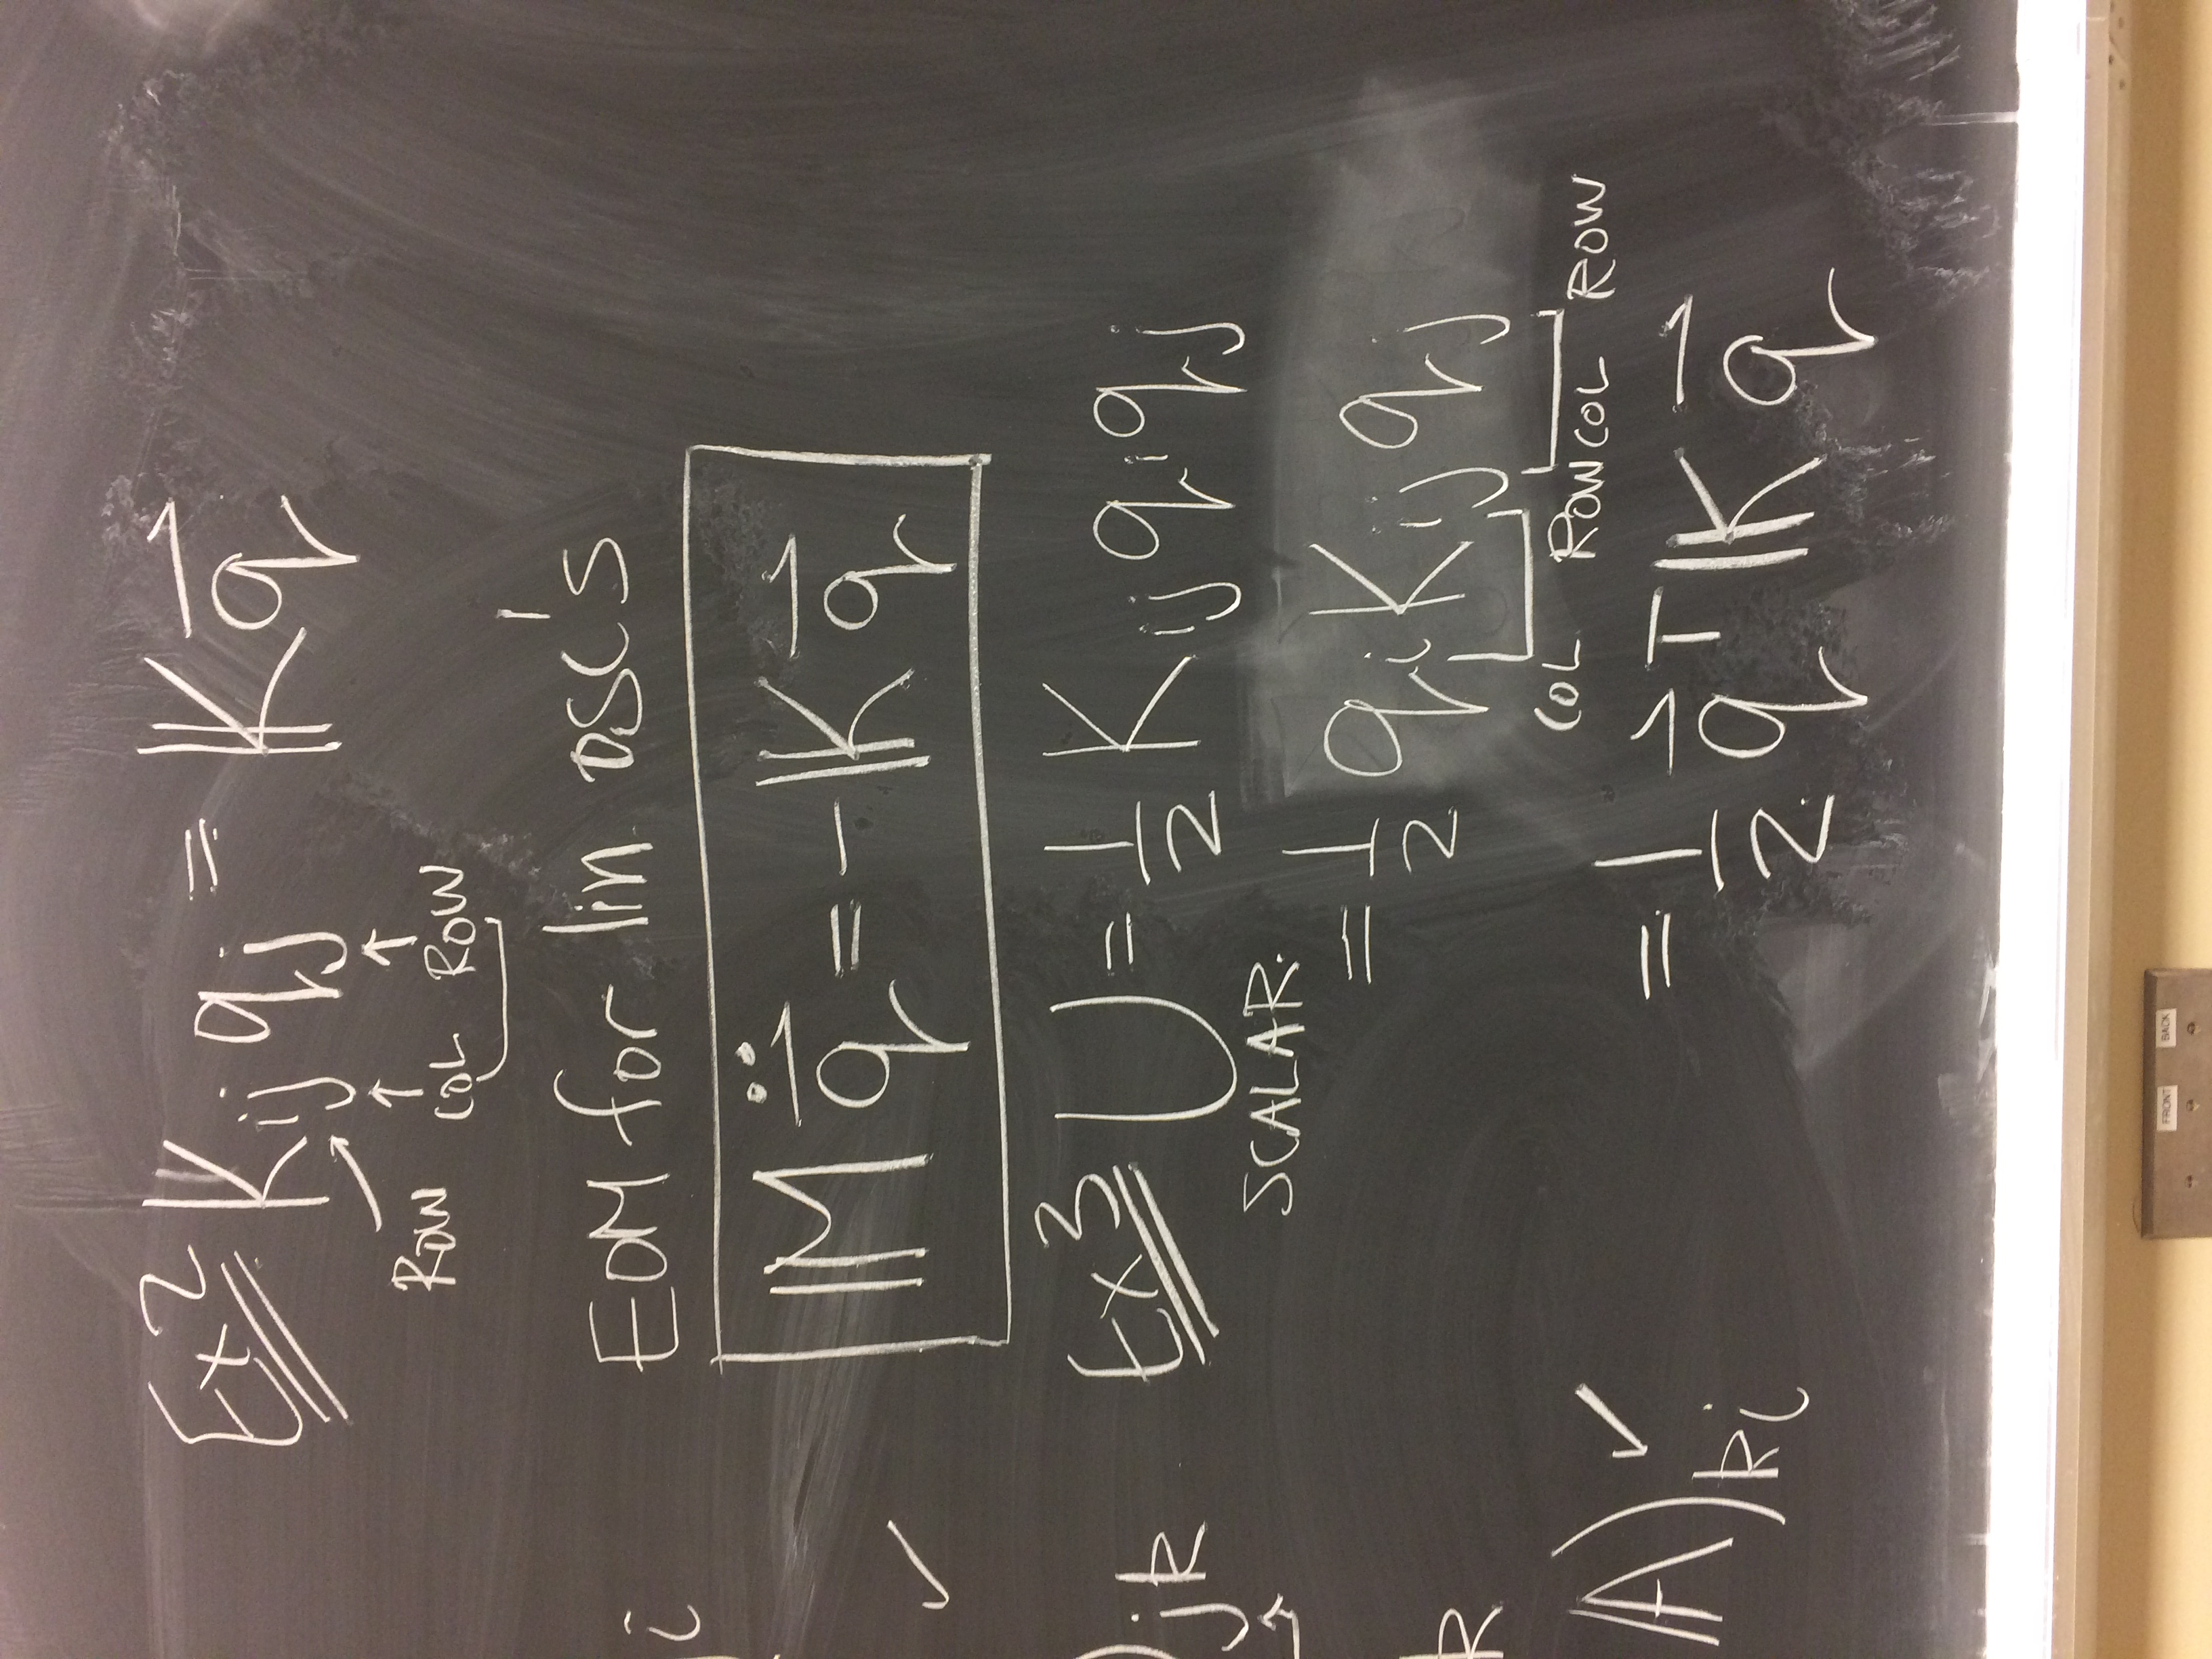 Ex2 Kij qj = 𝕂 q⃗
ROW COL ROW
EOM for lin osc's
𝕄 q⃗̈ = - 𝕂 q⃗
Ex3 U = 1/2 Kij qi qj
SCALAR.
= 1/2 qi Kij qj
COL ROW COL ROW
= 1/2 q⃗ᵀ 𝕂 q⃗
i
✓
)jk
k
𝔸)ki ✓
FRONT BACK